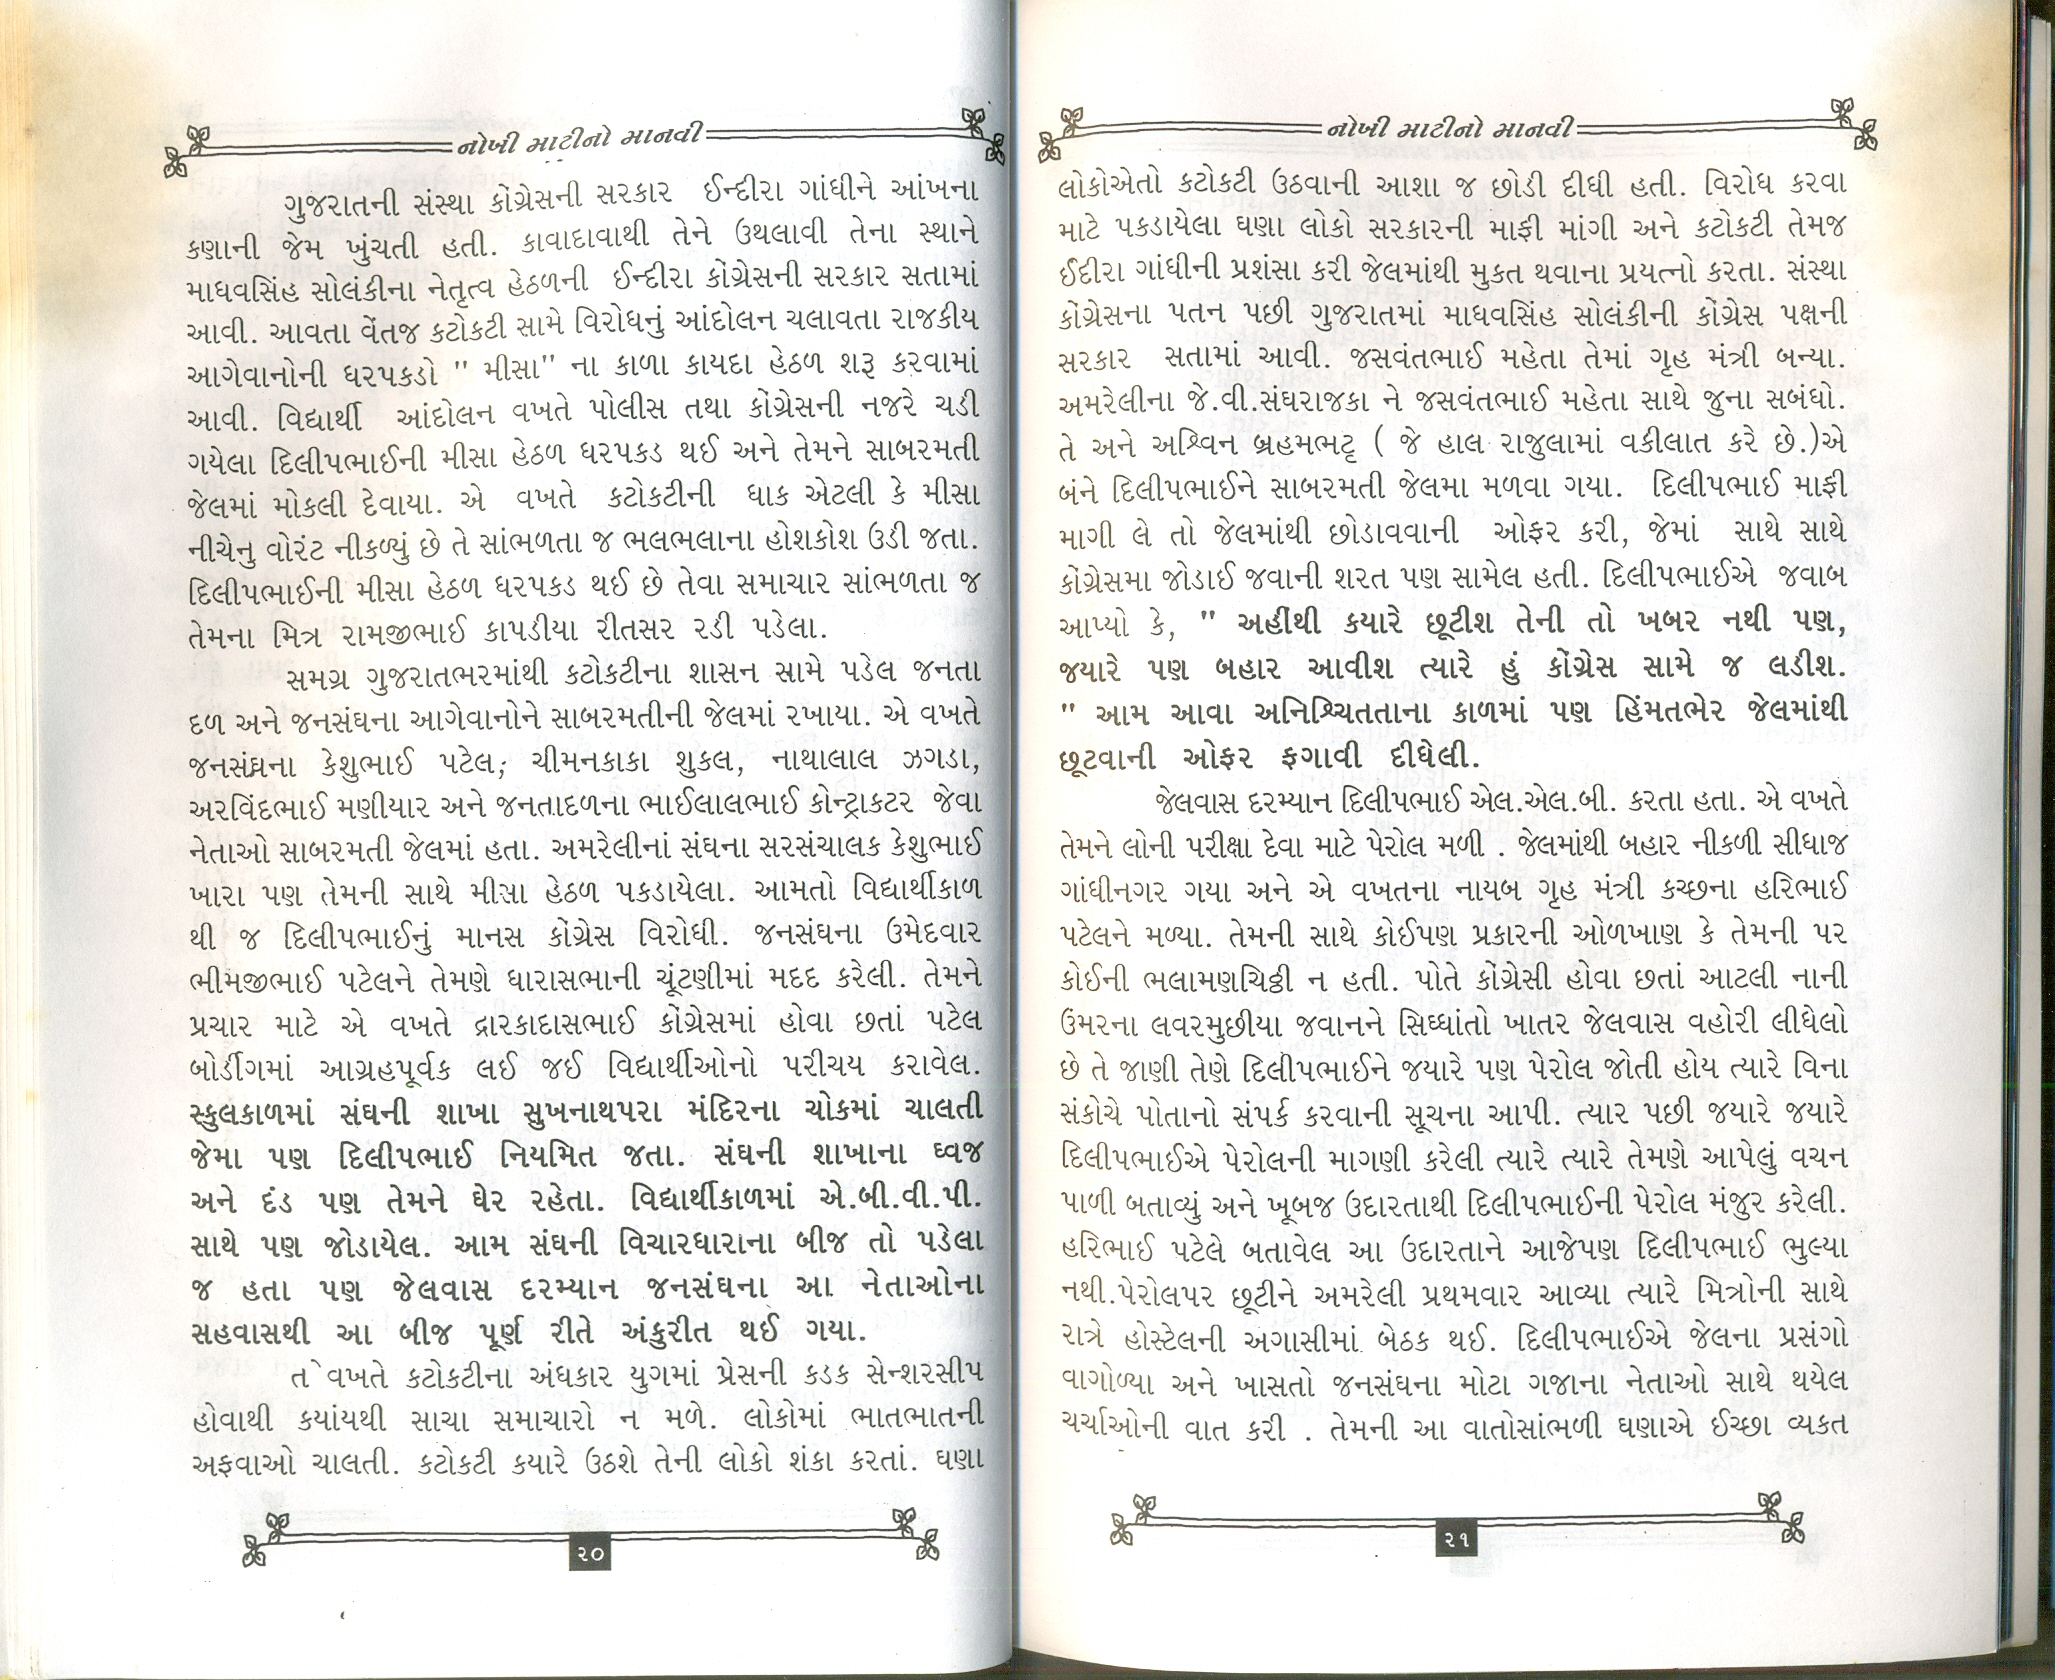 નોખી માટીનો માનવી
ગુજરાતની સંસ્થા કોંગ્રેસની સરકાર ઈન્દીરા ગાંધીને આંખના
કણાની જેમ ખુંચતી હતી. કાવાદાવાથી તેને ઉથલાવી તેના સ્થાને
માધવસિંહ સોલંકીના નેતૃત્વ હેઠળની ઈન્દીરા કોંગ્રેસની સરકાર સતામાં
આવી. આવતા વેંતજ કટોકટી સામે વિરોધનું આંદોલન ચલાવતા રાજકીય
આગેવાનોની ધરપકડો " મીસા" ના કાળા કાયદા હેઠળ શરૂ કરવામાં
આવી. વિદ્યાર્થી આંદોલન વખતે પોલીસ તથા કોંગ્રેસની નજરે ચડી
ગયેલા દિલીપભાઈની મીસા હેઠળ ધરપકડ થઈ અને તેમને સાબરમતી
જેલમાં મોકલી દેવાયા. એ વખતે કટોકટીની ધાક એટલી કે મીસા
નીચેનુ વોરંટ નીકળ્યું છે તે સાંભળતા જ ભલભલાના હોશકોશ ઉડી જતા.
દિલીપભાઈની મીસા હેઠળ ધરપકડ થઈ છે તેવા સમાચાર સાંભળતા જ
તેમના મિત્ર રામજીભાઈ કાપડીયા રીતસર રડી પડેલા.
સમગ્ર ગુજરાતભરમાંથી કટોકટીના શાસન સામે પડેલ જનતા
દળ અને જનસંઘના આગેવાનોને સાબરમતીની જેલમાં રખાયા. એ વખતે
જનસંઘના કેશુભાઈ પટેલ; ચીમનકાકા શુકલ, નાથાલાલ ઝગડા,
અરવિંદભાઈ મણીયાર અને જનતાદળના ભાઈલાલભાઈ કોન્ટ્રાકટર જેવા
નેતાઓ સાબરમતી જેલમાં હતા. અમરેલીનાં સંઘના સરસંચાલક કેશુભાઈ
ખારા પણ તેમની સાથે મીસા હેઠળ પકડાયેલા. આમતો વિદ્યાર્થીકાળ
થી જ દિલીપભાઈનું માનસ કોંગ્રેસ વિરોધી. જનસંઘના ઉમેદવાર
ભીમજીભાઈ પટેલને તેમણે ધારાસભાની ચૂંટણીમાં મદદ કરેલી. તેમને
પ્રચાર માટે એ વખતે દ્રારકાદાસભાઈ કોંગ્રેસમાં હોવા છતાં પટેલ
બોર્ડીંગમાં આગ્રહપૂર્વક લઈ જઈ વિદ્યાર્થીઓનો પરીચય કરાવેલ.
સ્કુલકાળમાં સંઘની શાખા સુખનાથપરા મંદિરના ચોકમાં ચાલતી
જેમા પણ દિલીપભાઈ નિયમિત જતા. સંઘની શાખાના ધ્વજ
અને દંડ પણ તેમને ઘેર રહેતા. વિદ્યાર્થીકાળમાં એ.બી.વી.પી.
સાથે પણ જોડાયેલ. આમ સંઘની વિચારધારાના બીજ તો પડેલા
જ હતા પણ જેલવાસ દરમ્યાન જનસંઘના આ નેતાઓના
સહવાસથી આ બીજ પૂર્ણ રીતે અંકુરીત થઈ ગયા.
તે વખતે કટોકટીના અંધકાર યુગમાં પ્રેસની કડક સેન્શરસીપ
હોવાથી કયાંયથી સાચા સમાચારો ન મળે. લોકોમાં ભાતભાતની
અફવાઓ ચાલતી. કટોકટી કયારે ઉઠશે તેની લોકો શંકા કરતાં. ઘણા
૨૦
નોખી માટીનો માનવી
લોકોએતો કટોકટી ઉઠવાની આશા જ છોડી દીધી હતી. વિરોધ કરવા
માટે પકડાયેલા ઘણા લોકો સરકારની માફી માંગી અને કટોકટી તેમજ
ઈંદીરા ગાંધીની પ્રશંસા કરી જેલમાંથી મુકત થવાના પ્રયત્નો કરતા. સંસ્થા
કોંગ્રેસના પતન પછી ગુજરાતમાં માધવસિંહ સોલંકીની કોંગ્રેસ પક્ષની
સરકાર સતામાં આવી. જસવંતભાઈ મહેતા તેમાં ગૃહ મંત્રી બન્યા.
અમરેલીના જે.વી.સંઘરાજકા ને જસવંતભાઈ મહેતા સાથે જુના સબંધો.
તે અને અશ્વિન બ્રહમભટ્ટ ( જે હાલ રાજુલામાં વકીલાત કરે છે.)એ
બંને દિલીપભાઈને સાબરમતી જેલમા મળવા ગયા. દિલીપભાઈ માફી
માગી લે તો જેલમાંથી છોડાવવાની ઓફર કરી, જેમાં સાથે સાથે
કોંગ્રેસમા જોડાઈ જવાની શરત પણ સામેલ હતી. દિલીપભાઈએ જવાબ
આપ્યો કે, " અહીંથી કયારે છૂટીશ તેની તો ખબર નથી પણ,
જયારે પણ બહાર આવીશ ત્યારે હું કોંગ્રેસ સામે જ લડીશ.
" આમ આવા અનિશ્ચિતતાના કાળમાં પણ હિંમતભેર જેલમાંથી
છૂટવાની ઓફર ફગાવી દીધેલી.
જેલવાસ દરમ્યાન દિલીપભાઈ એલ.એલ.બી. કરતા હતા. એ વખતે
તેમને લોની પરીક્ષા દેવા માટે પેરોલ મળી . જેલમાંથી બહાર નીકળી સીધાજ
ગાંધીનગર ગયા અને એ વખતના નાયબ ગૃહ મંત્રી કચ્છના હરિભાઈ
પટેલને મળ્યા. તેમની સાથે કોઈપણ પ્રકારની ઓળખાણ કે તેમની પર
કોઈની ભલામણચિઠ્ઠી ન હતી. પોતે કોંગ્રેસી હોવા છતાં આટલી નાની
ઉંમરના લવરમુછીયા જવાનને સિધ્ધાંતો ખાતર જેલવાસ વહોરી લીધેલો
છે તે જાણી તેણે દિલીપભાઈને જયારે પણ પેરોલ જોતી હોય ત્યારે વિના
સંકોચે પોતાનો સંપર્ક કરવાની સૂચના આપી. ત્યાર પછી જયારે જયારે
દિલીપભાઈએ પેરોલની માગણી કરેલી ત્યારે ત્યારે તેમણે આપેલું વચન
પાળી બતાવ્યું અને ખૂબજ ઉદારતાથી દિલીપભાઈની પેરોલ મંજુર કરેલી.
હરિભાઈ પટેલે બતાવેલ આ ઉદારતાને આજેપણ દિલીપભાઈ ભુલ્યા
નથી.પેરોલપર છૂટીને અમરેલી પ્રથમવાર આવ્યા ત્યારે મિત્રોની સાથે
રાત્રે હોસ્ટેલની અગાસીમાં બેઠક થઈ. દિલીપભાઈએ જેલના પ્રસંગો
વાગોળ્યા અને ખાસતો જનસંઘના મોટા ગજાના નેતાઓ સાથે થયેલ
ચર્ચાઓની વાત કરી . તેમની આ વાતોસાંભળી ઘણાએ ઈચ્છા વ્યકત
૨૧